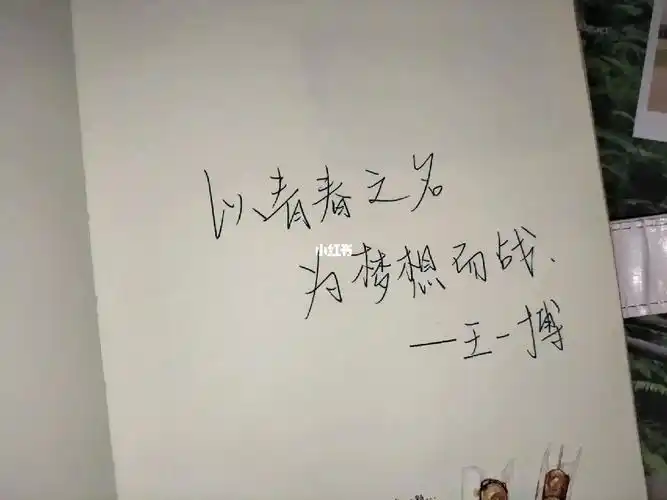 以青春之名
小红书
为梦想而战.
—王一搏